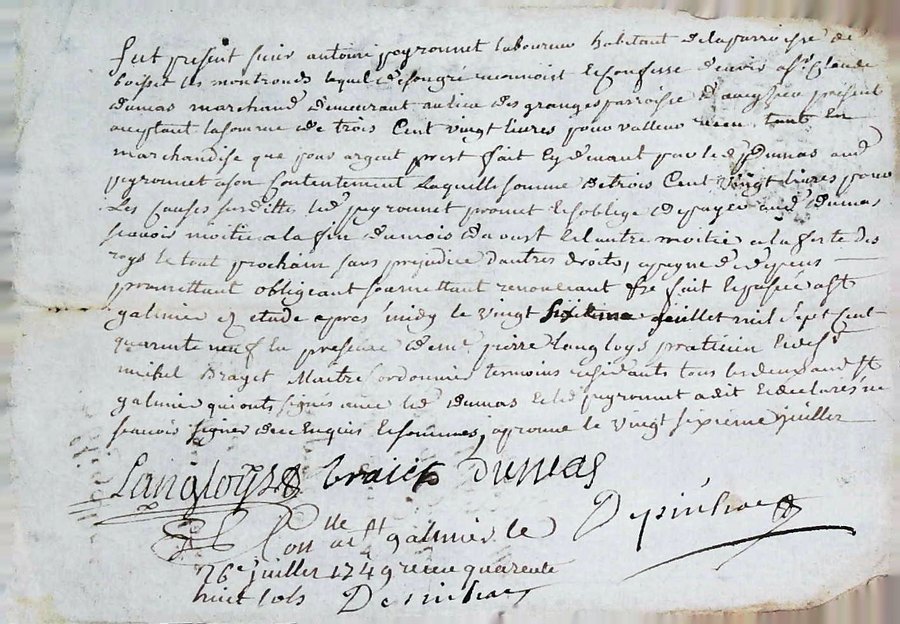 fut présent sieur antoine peyronnet laboureur habitant de la parroisse de
boisset les montrond lequel de son gré reconnoist et confesse devoir a Sr Claude
dumas marchand demeurant au lieu des granges parroisse d'aveyzieu présent
acceptant la somme de trois Cent vingt livres pour valleur reçeu tant en
marchandise que pour argent prest fait cy devant par led dumas aud
peyronnet a son Contentement Laquelle somme de trois Cent vingt livres pour
Les causes susdittes led peyronnet promet et s'oblige de payer aud dumas
scavoir moitié a la fin du mois d'aoust et l'autre moitié a la feste des
roys le tout prochain sans prejudice d'autres droits,
promettant obligeant soumettant renonceant &c fait et passé a St
galmier étude après midy le vingt sixième juillet mil sept cent
quarante neuf En présence de me pierre Langloys praticien et de Sr
michel Brayet Maitre Cordonnier temoins résidants tous les deux aud St
galmier qui onts signés avec led dumas et led peyronnet a dit et déclaré ne
scavoir signer de ce Enquis et sommés, approuvé le vingt sixième juillet
Langloys braiet Dumas
Conlle a St galmier le
26e juillet 1749 reçeu quarente
huit sols